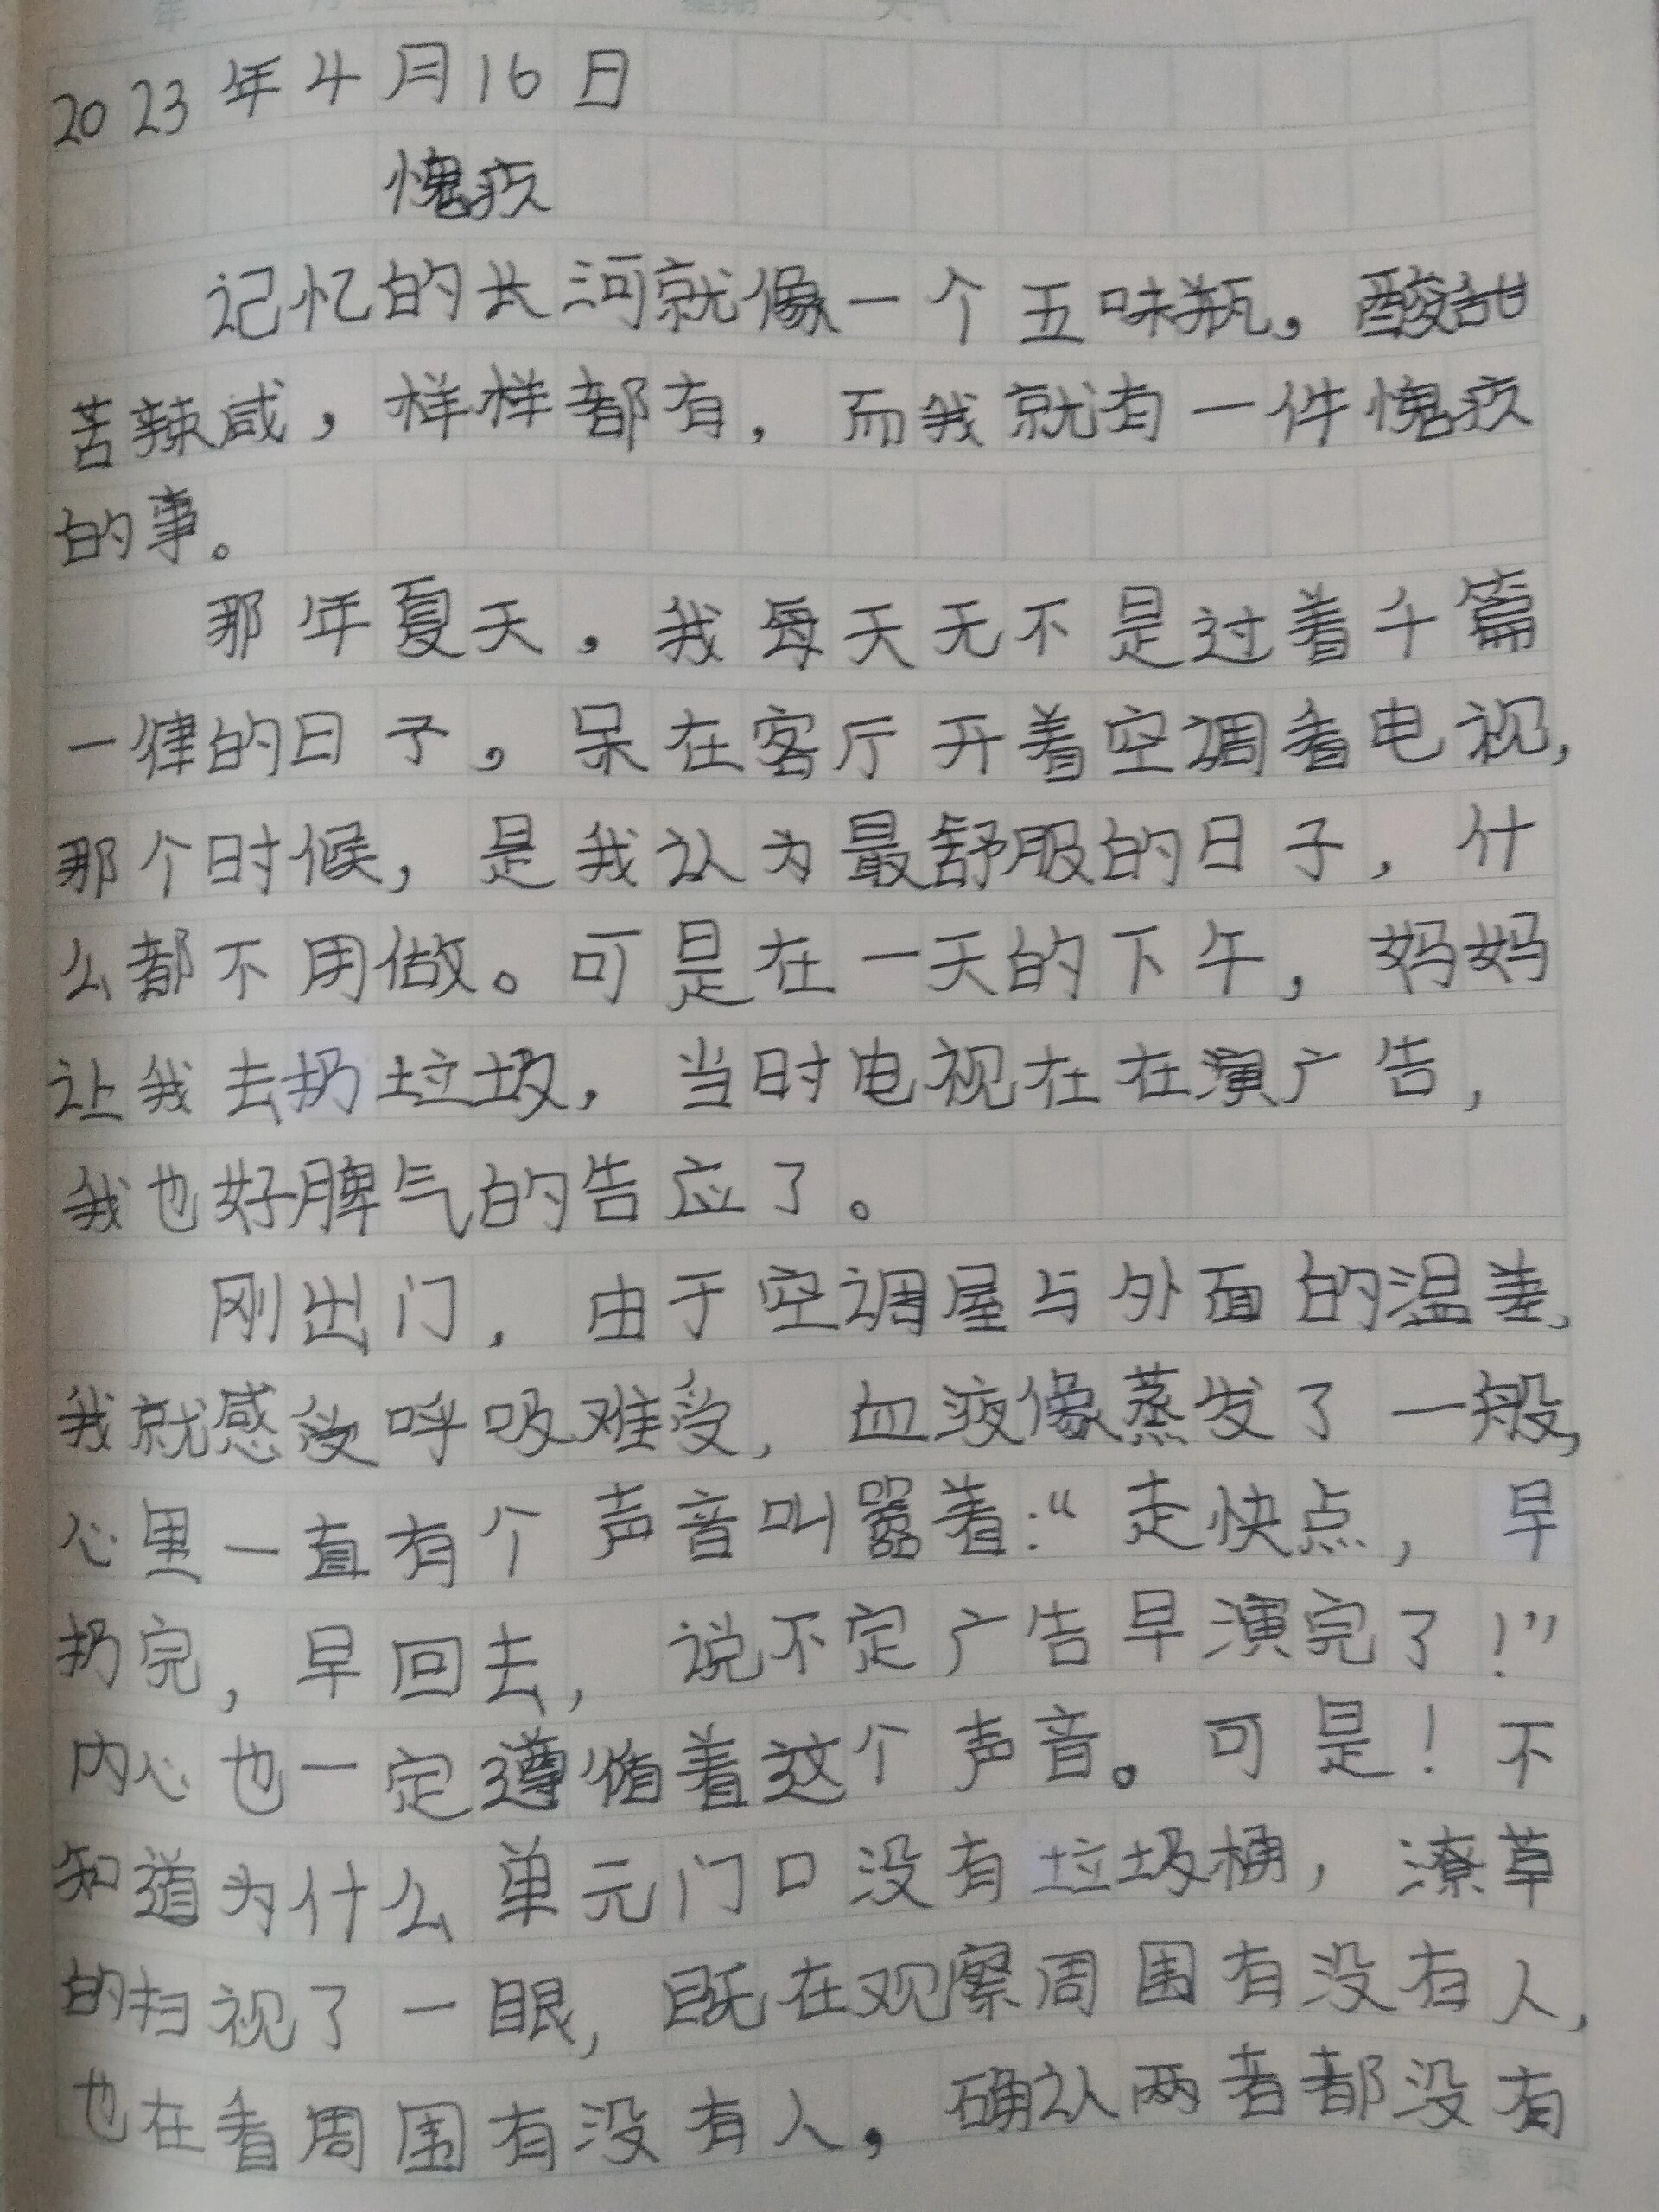 2023年4月16日
愧疚
记忆的长河就像一个五味瓶，酸甜
苦辣咸，样样都有，而我就有一件愧疚
的事。
那年夏天，我每天无不是过着千篇
一律的日子，呆在客厅开着空调看电视，
那个时候，是我认为最舒服的日子，什
么都不用做。可是在一天的下午，妈妈
让我去扔垃圾，当时电视在在演广告，
我也好脾气的告应了。
刚出门，由于空调屋与外面的温差，
我就感受呼吸难受，血液像蒸发了一般，
心里一直有个声音叫嚣着：“走快点，早
扔完，早回去，说不定广告早演完了！”
内心也一定遵循着这个声音。可是！不
知道为什么单元门口没有垃圾桶，潦草
的扫视了一眼，既在观察周围有没有人，
也在看周围有没有人，确认两者都没有